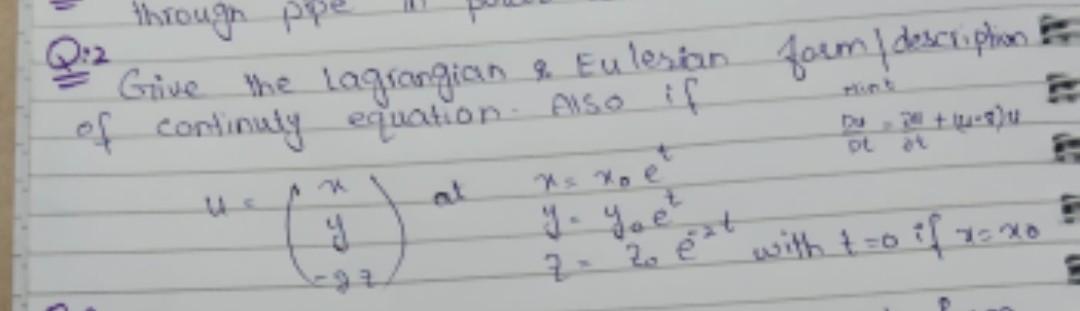 through pipe in
Q:2
Give the Lagrangian & Eulerian form/description
of continuty equation. Also if
Hint
Du/Dt = ∂u/∂t + (u·∇)u
u = (x y -2z) at x = x₀ e^t
y = y₀ e^t
z = z₀ e^-2t with t=0 if x=x₀